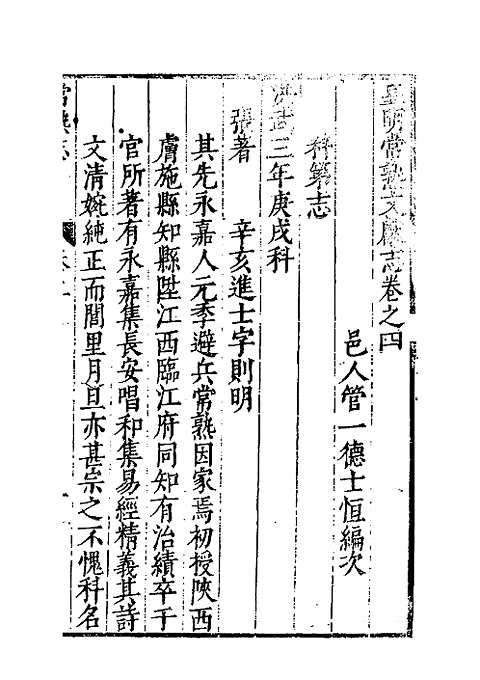 皇明常熟文獻志卷之四
邑人管一德士恒編次
科第志
洪武三年庚戌科
張著　辛亥進士字則明
其先永嘉人元季避兵常熟因家焉初授陝西
膚施縣知縣陞江西臨江府同知有治績卒于
官所著有永嘉集長安唱和集易經精義其詩
文清婉純正而閭里月旦亦甚崇之不愧科名